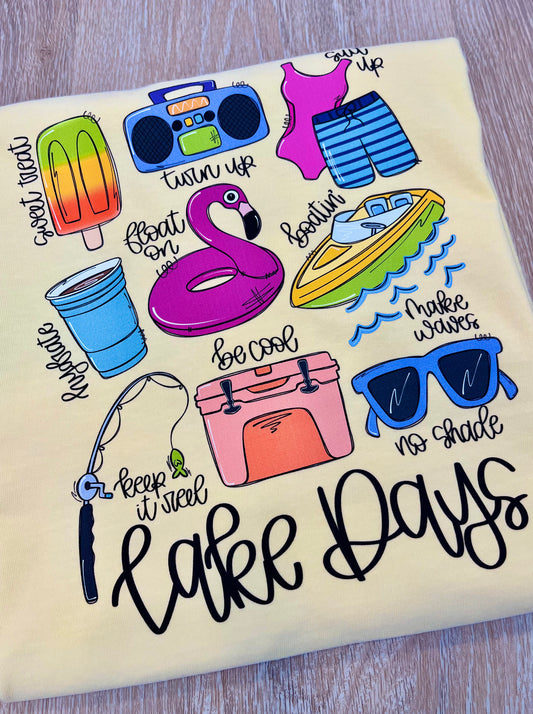 sweet treat
turn up
suit
up
float
on
boatin'
hydrate
be cool
make
waves
keep
it reel
no shade
Lake Days